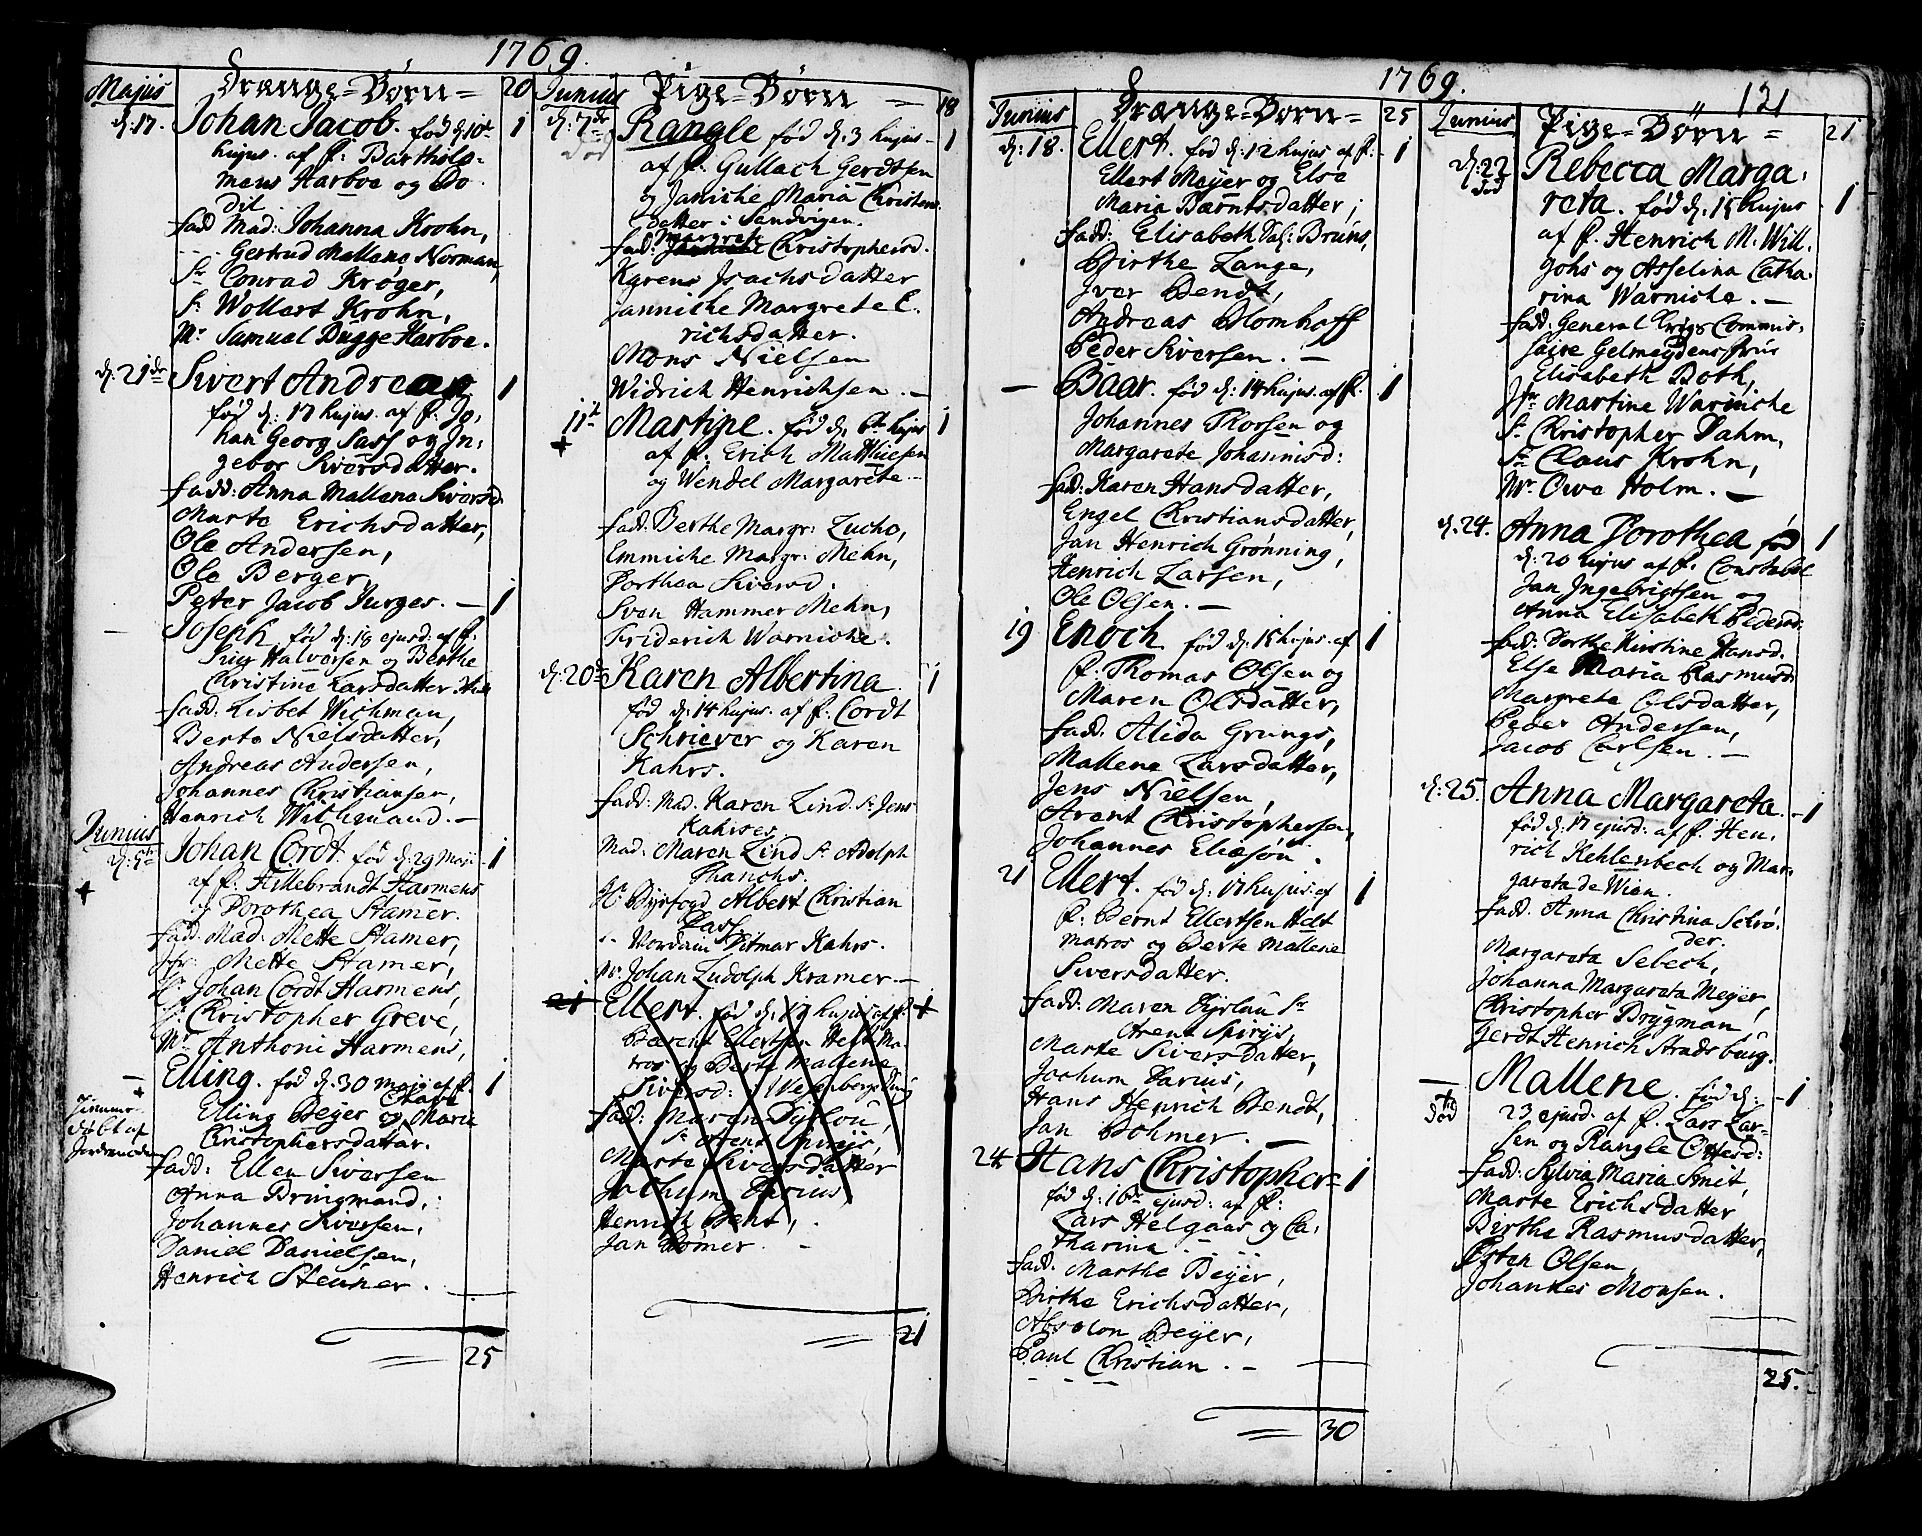 1769.
Majus
Drænge-Börn
20
d. 17.
Johan Jacob. fød d. 10de 1
hujus. af f. Bartholo-
mæus Harboe og Bo-
dil
fadd Mad: Johanna Krohn,
Gertrud Mallene Norman,
Sr Conrad Krøger,
Sr Wollert Krohn,
Mr Samuel Bugge Harboe.
d. 21de Sivert Andreas 1
fød d. 17 hujus. af f. Jo,
han Georg Sass og In,
gebor Siversdatter.
fadd: Anna Mallena Siversd.
Marte Erichsdatter,
Ole Andersen,
Ole Berger,
Peter Jacob Jurges. —
Joseph fød d. 19 ejusd. af f. 1
Siur Halversen og Berthe
Christine Larsdatter
fadd: Lisbet Wichman,
Berte Nielsdatter,
Andreas Andersen,
Johannes Christiansen,
Henrich Wichmand. —
Junius
d. 5te Johan Cordt. fød d. 29 Maji 1
af f. Hillebrandt Harmens
og Dorothea Stamer.
fadd. Mad. Mette Stamer,
Jfr. Mette Stamer,
Hr. Johan Cordt Harmens,
Sr. Christopher Greve,
Mr Anthoni Harmens,
— Elling. fød d. 30 Maji af f. 1
Elling Beyer og Maria
Christophersdatter.
hiemme-
døbt af
Jordemoder
fadd: Ellen Siversen
Anna Bringmand,
Johannes Siversen,
Daniel Danielsen,
Henrich Steuner.
25
Junius
Pige-Börn
18
d. 7de
død
Rangle fød d. 3 hujus 1
af f. Gullach Gerdtsen
og Janiche Maria Christens
datter i Sandvigen.
fadd. Margrete Christophersd.
Karen Isachsdatter
Janniche Margrete E.
richsdatter.
Mons Nielsen
Widrich Henrichsen. —
11te Martine. fød d. 6te hujus 1
af f. Erich Matthiesen
og Wendel Margarete
fadd. Berthe Margr: Zucho,
Emmiche Margr: Mehn,
Dorthea Siversd.
Sven Hammer Mehn,
Friderich Warniche.
d. 20de Karen Albertina 1
fød d. 14 hujus. af f. Cordt
Schriever og Karen
Kahrs.
fadd: Mad. Karen Lind. Sr Jens
Kahrses.
Mad. Maren Lind Sr Adolph
Hr Byefogd Albert Christian
Dass.
Sr Vordain Ditmar Kahrs.
Mr. Johan Ludolph Kramer —
21 Ellert. fød d. 17 hujus af f. 1
Bærent Ellertsen Helt Ma-
tros og Berte Mallene
Siversd:
fadd: Maren Dyrlou,
Sr Arent Spirijs,
Marte Siversdatter
Jochum Darius
Henrich Bent,
Jan Bømer.
21
1769.
121
Junius
Drænge-Börn
25
d. 18. Ellert. fød d. 12 hujus af f. 1
Ellert Meyer og Else
Maria Bærntsdatter,
fadd: Elisabeth Sal: Bruns,
Birthe Lange,
Iver Bendt,
Andreas Blomhoff
Peder Siversen. —
— Baar. fød d. 14 hujus. af f. 1
Johannes Thorsen og
Margarete Johannisd:
fadd: Karen Hansdatter,
Engel Christiansdatter,
Jan Henrich Grønning,
Henrich Larsen,
Ole Olsen. —
19 Enoch fød d. 15 hujus. af 1
f. Thomas Olsen og
Maren Olsdatter,
fadd. Alida Grungs,
Mallene Larsdatter,
Jens Nielsen,
Arent Christophersen,
Johannes Eliæsøn.
21 Ellert. fød d. 17 hujus. af 1
f. Bernt Ellertsen Helt
Matros og Berte Mallene
Siversdatter.
fadd: Maren Dyrlou Sr
Arent Spirijs,
Marte Siversdatter,
Jochum Darius,
Hans Henrich Bendt,
Jan Bohmer. —
24 Hans Christopher- 1
fød d. 16de ejusd: af f:
Lars Helgaas og Ca,
tharina
fadd. Marthe Beyer,
Birthe Erichsdatter,
Absolon Beyer,
Paul Christian. —
30
Junius
Pige-Börn
21
d. 22
død
Rebecca Marga,
reta. fød d. 15 hujus 1
af f. Henrich M. Will.
johs og Asselina Catha,
rina Warniche. —
fadd. General Krigs Commis,
saire Gelmeydens frue
Elisabeth Both,
Jfr Martine Warniche
Sr Christopher Dahm,
Sr Claus Krohn,
Mr Owe Holm. —
d. 24. Anna Dorothea fød 1
d. 20 hujus af f. Constabel
Jan Ingebrigtsen og
Anna Elisabeth Pedersd.
fadd: Dorthe Kirstine Hansd.
Else Maria Rasmusd
Margrete Olsdatter,
Peder Andersen,
Jacob Carlsen. —
d. 25. Anna Margareta. 1
fød d. 17 ejusd: af f. Hen,
rich Kehlenbech og Mar,
gareta de Wien.
fadd. Anna Christina Schrø,
der.
Margareta Sebech,
Johanna Margareta Meyer,
Christopher Brygman,
Gerdt Henrich Stradsburg.
— Mallene. fød d: 1
død
23 ejusd. af f. Lars Lar-
sen og Rangle Ottesd:
fadd: Sylvia Maria Smit,
Marte Erichsdatter
Berthe Rasmusdatter,
Østen Olsen
Johannes Monsen.
25.